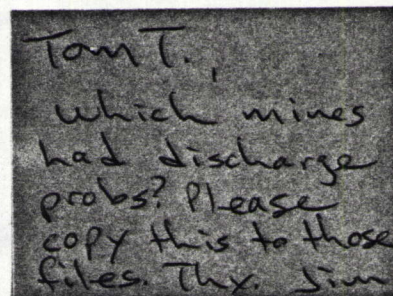 Tom T.,
Which mines
had discharge
probs? Please
copy this to those
files. Thx. Jim